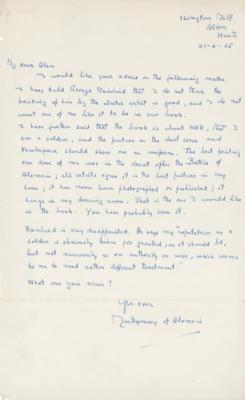 Isington Mill
Alton
Hants
21-4-66
My dear Alan
I would like your advice on the following matter.
I have told George Rainbird that I do not think the
painting of him by the Dutch artist is good, and I do not
want one of me like it to be in our book.
I have further said that the book is about WAR, that I
am a soldier, and the picture on the dust cover and
Frontispiece should show me in uniform. The best painting
ever done of me was in the desert after the Battle of
Alamein; all artists agree it is the best picture in my
home; it has never been photographed or published; it
hangs in my drawing room. That is the one I would like
in the book. You have probably seen it.
Rainbird is very disappointed. He says my "reputation as a
soldier is obviously taken for granted, as it should be,
but not necessarily as an authority on war, which seems
to me to need rather different treatment."
What are your views?
Yrs. ever
Montgomery of Alamein